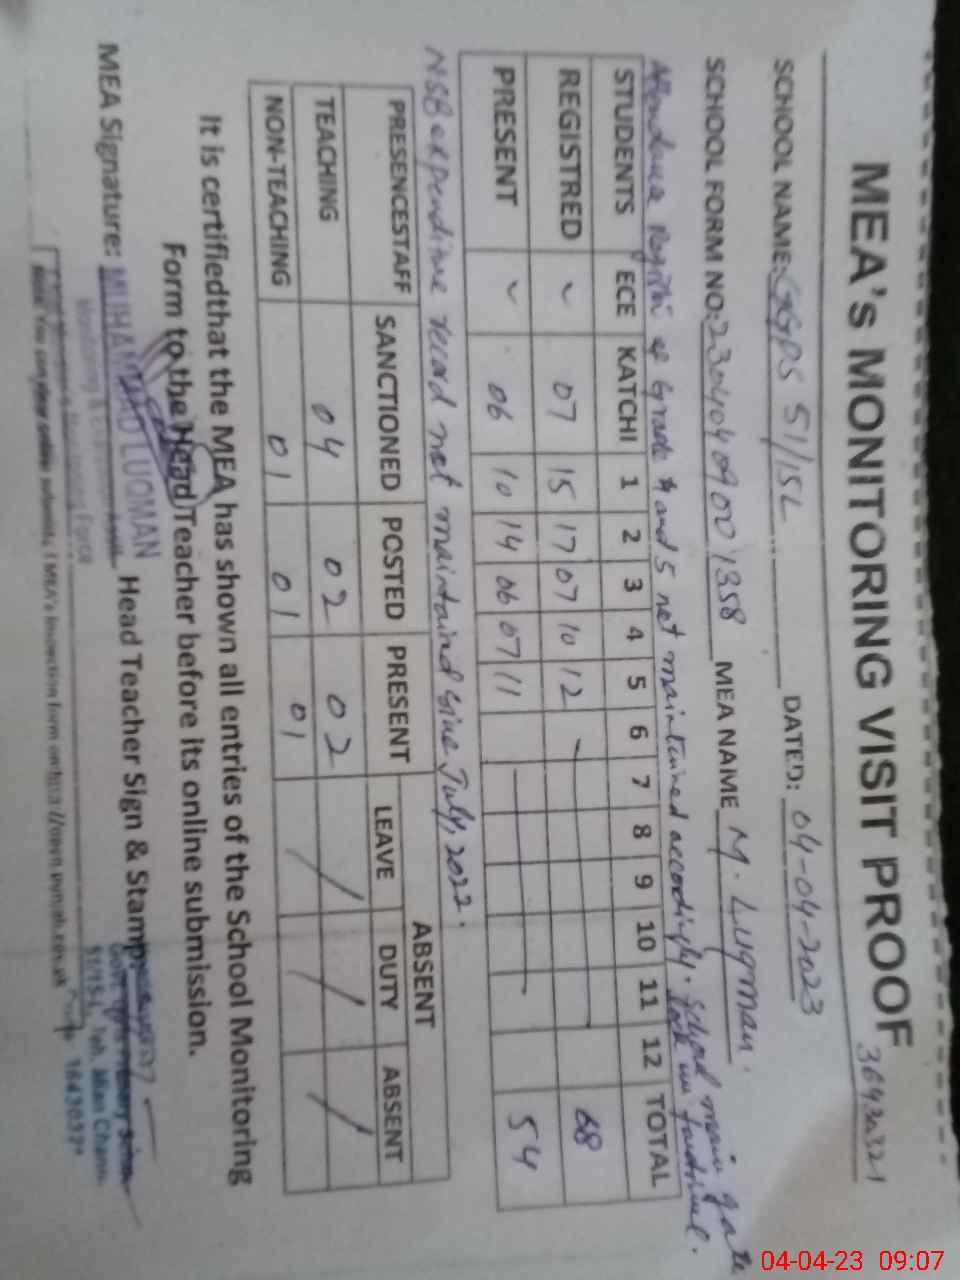 MEA's MONITORING VISIT PROOF
SCHOOL NAME: GGPS 51/15L DATED: 04-04-2023
SCHOOL FORM NO: MEA NAME M. Luqman.
of Grade 4 and 5 not maintained accordingly. School main gate
STUDENTS ECE KATCHI 1 2 3 4 5 6 7 8 9 10 11 12 TOTAL
REGISTRED 07 15 17 07 10 12 68
PRESENT 06 10 14 06 07 11 54
NSB expenditure record not maintained since July, 2022.
PRESENCESTAFF SANCTIONED POSTED PRESENT ABSENT
LEAVE DUTY ABSENT
TEACHING 04 02 02
NON-TEACHING 01 01 01
It is certifiedthat the MEA has shown all entries of the School Monitoring
Form to the Head Teacher before its online submission.
MEA Signature: MUHAMMAD LUQMAN Head Teacher Sign & Stamp:
04-04-23 09:07